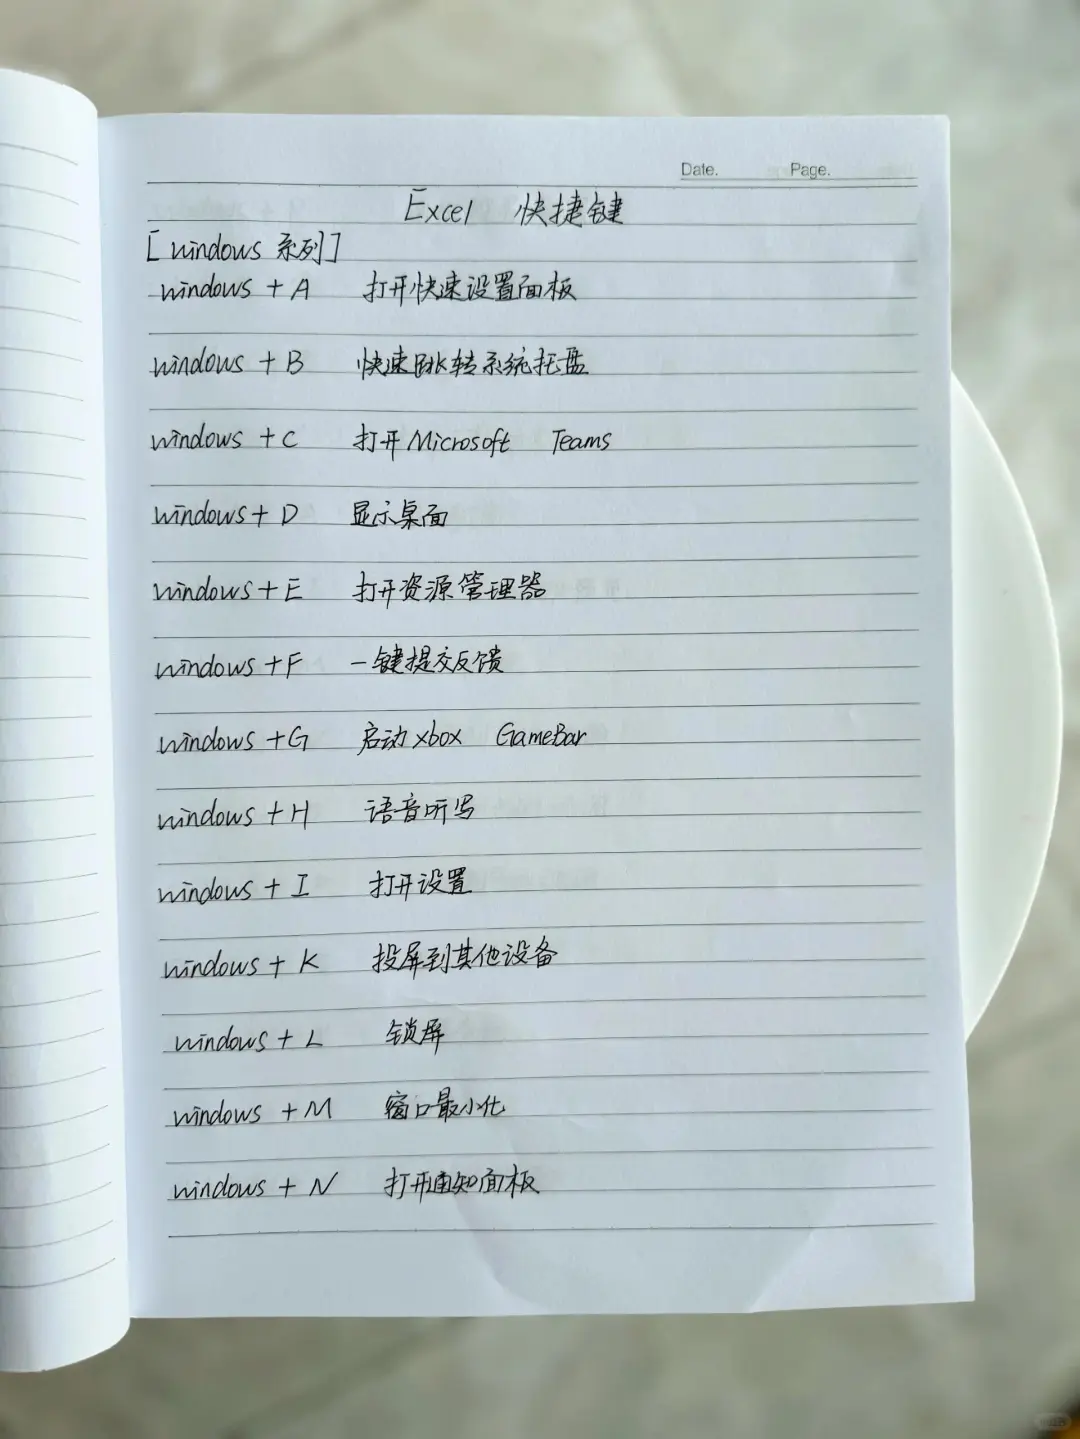 Date. Page.
Excel 快捷键
[windows 系列]
windows + A 打开快速设置面板
windows + B 快速跳转系统托盘
windows + C 打开Microsoft Teams
windows + D 显示桌面
windows + E 打开资源管理器
windows + F 一键提交反馈
windows + G 启动xbox GameBar
windows + H 语音听写
windows + I 打开设置
windows + K 投屏到其他设备
windows + L 锁屏
windows + M 窗口最小化
windows + N 打开通知面板